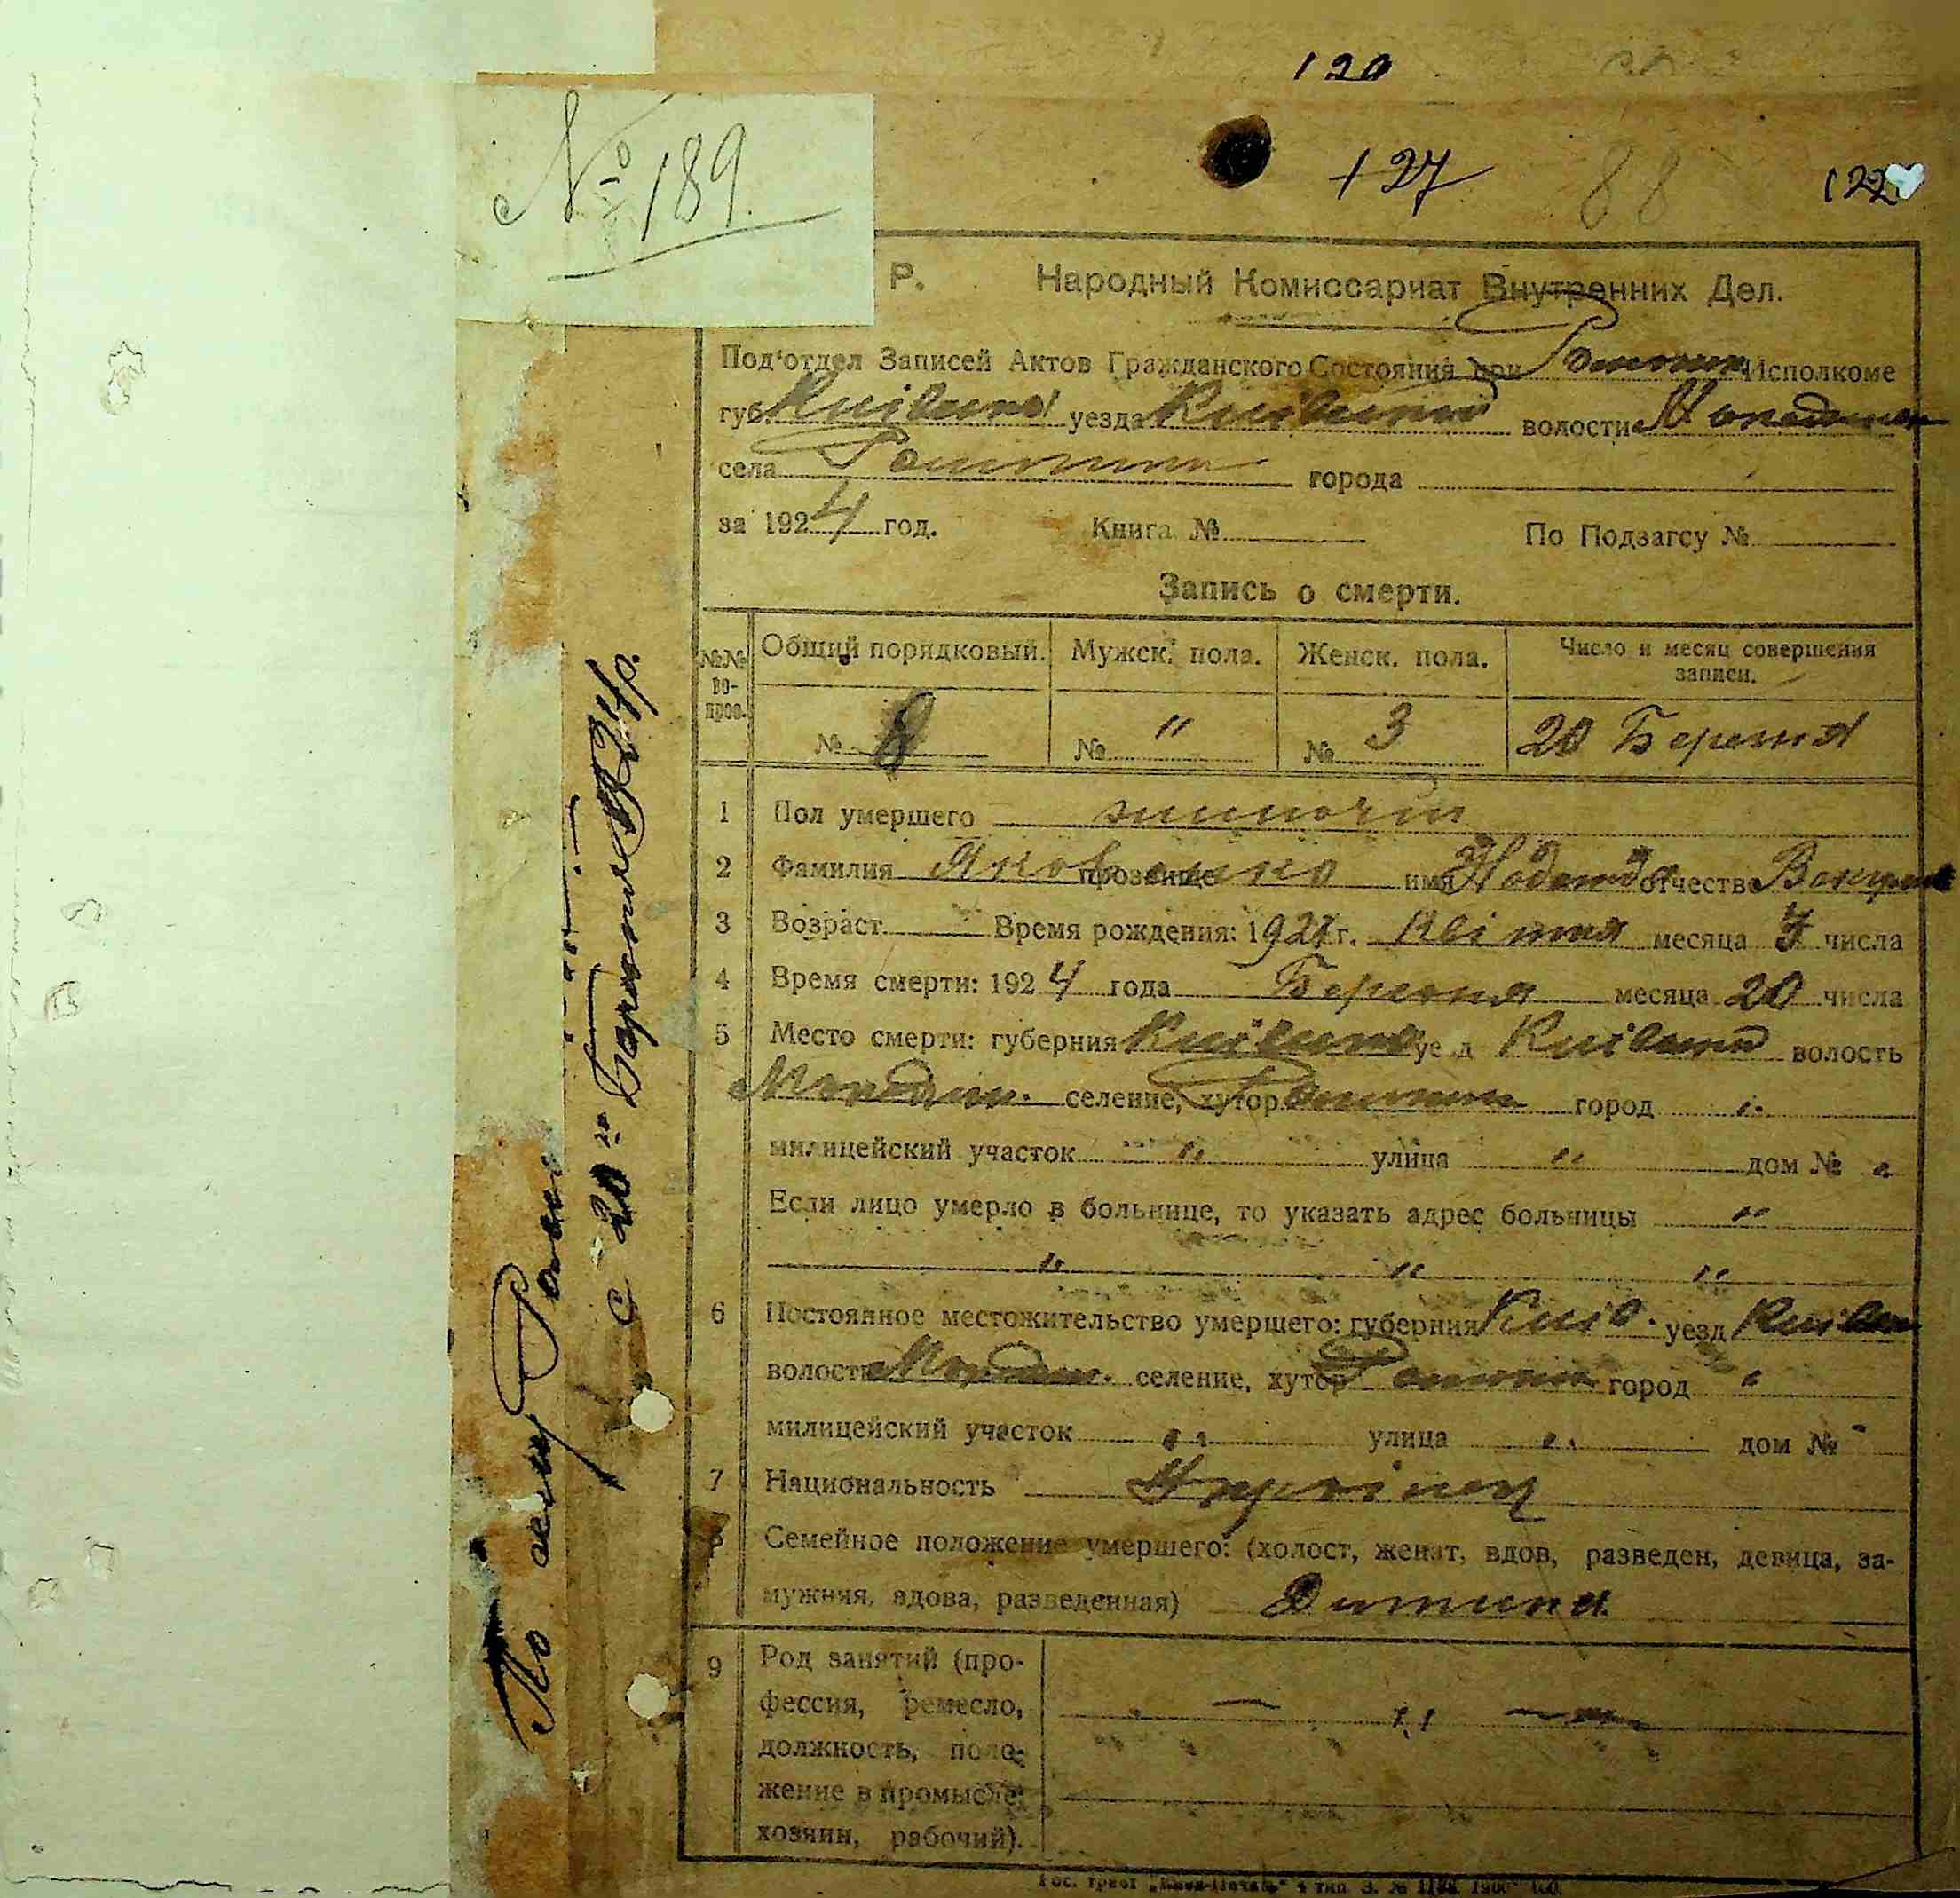 120
127 88 122
№ 189.
Р. Народный Комиссариат Внутренних Дел.
Под'отдел Записей Актов Гражданского Состояния при Исполкоме
губ. Київської уезда Київський волости
села города
за 1924 год. Книга № По Подзагсу №
Запись о смерти.
№№ во-прос. Общий порядковый. Мужск. пола. Женск. пола. Число и месяц совершения записи.
№ 8 № " № 3 20 Березня
1 Пол умершего жиночій
2 Фамилия прозвище Яковенко имя Надежда отчество
3 Возраст Время рождения: 192 г. Квітня месяца числа
4 Время смерти: 1924 года Березня месяца 20 числа
5 Место смерти: губерния уезд волость
селение, хутор город
милицейский участок " улица " дом № "
Если лицо умерло в больнице, то указать адрес больницы "
" " "
6 Постоянное местожительство умершего: губерния Київ. уезд
волость селение, хутор город "
милицейский участок " улица " дом № "
7 Национальность Українец
8 Семейное положение умершего: (холост, женат, вдов, разведен, девица, за-
мужняя, вдова, разведенная) Дитина
9 Род занятий (про-
фессия, ремесло,
должность, поло-
жение в промысле:
хозяин, рабочий).
По селу
с 20 Березня 1924 р.